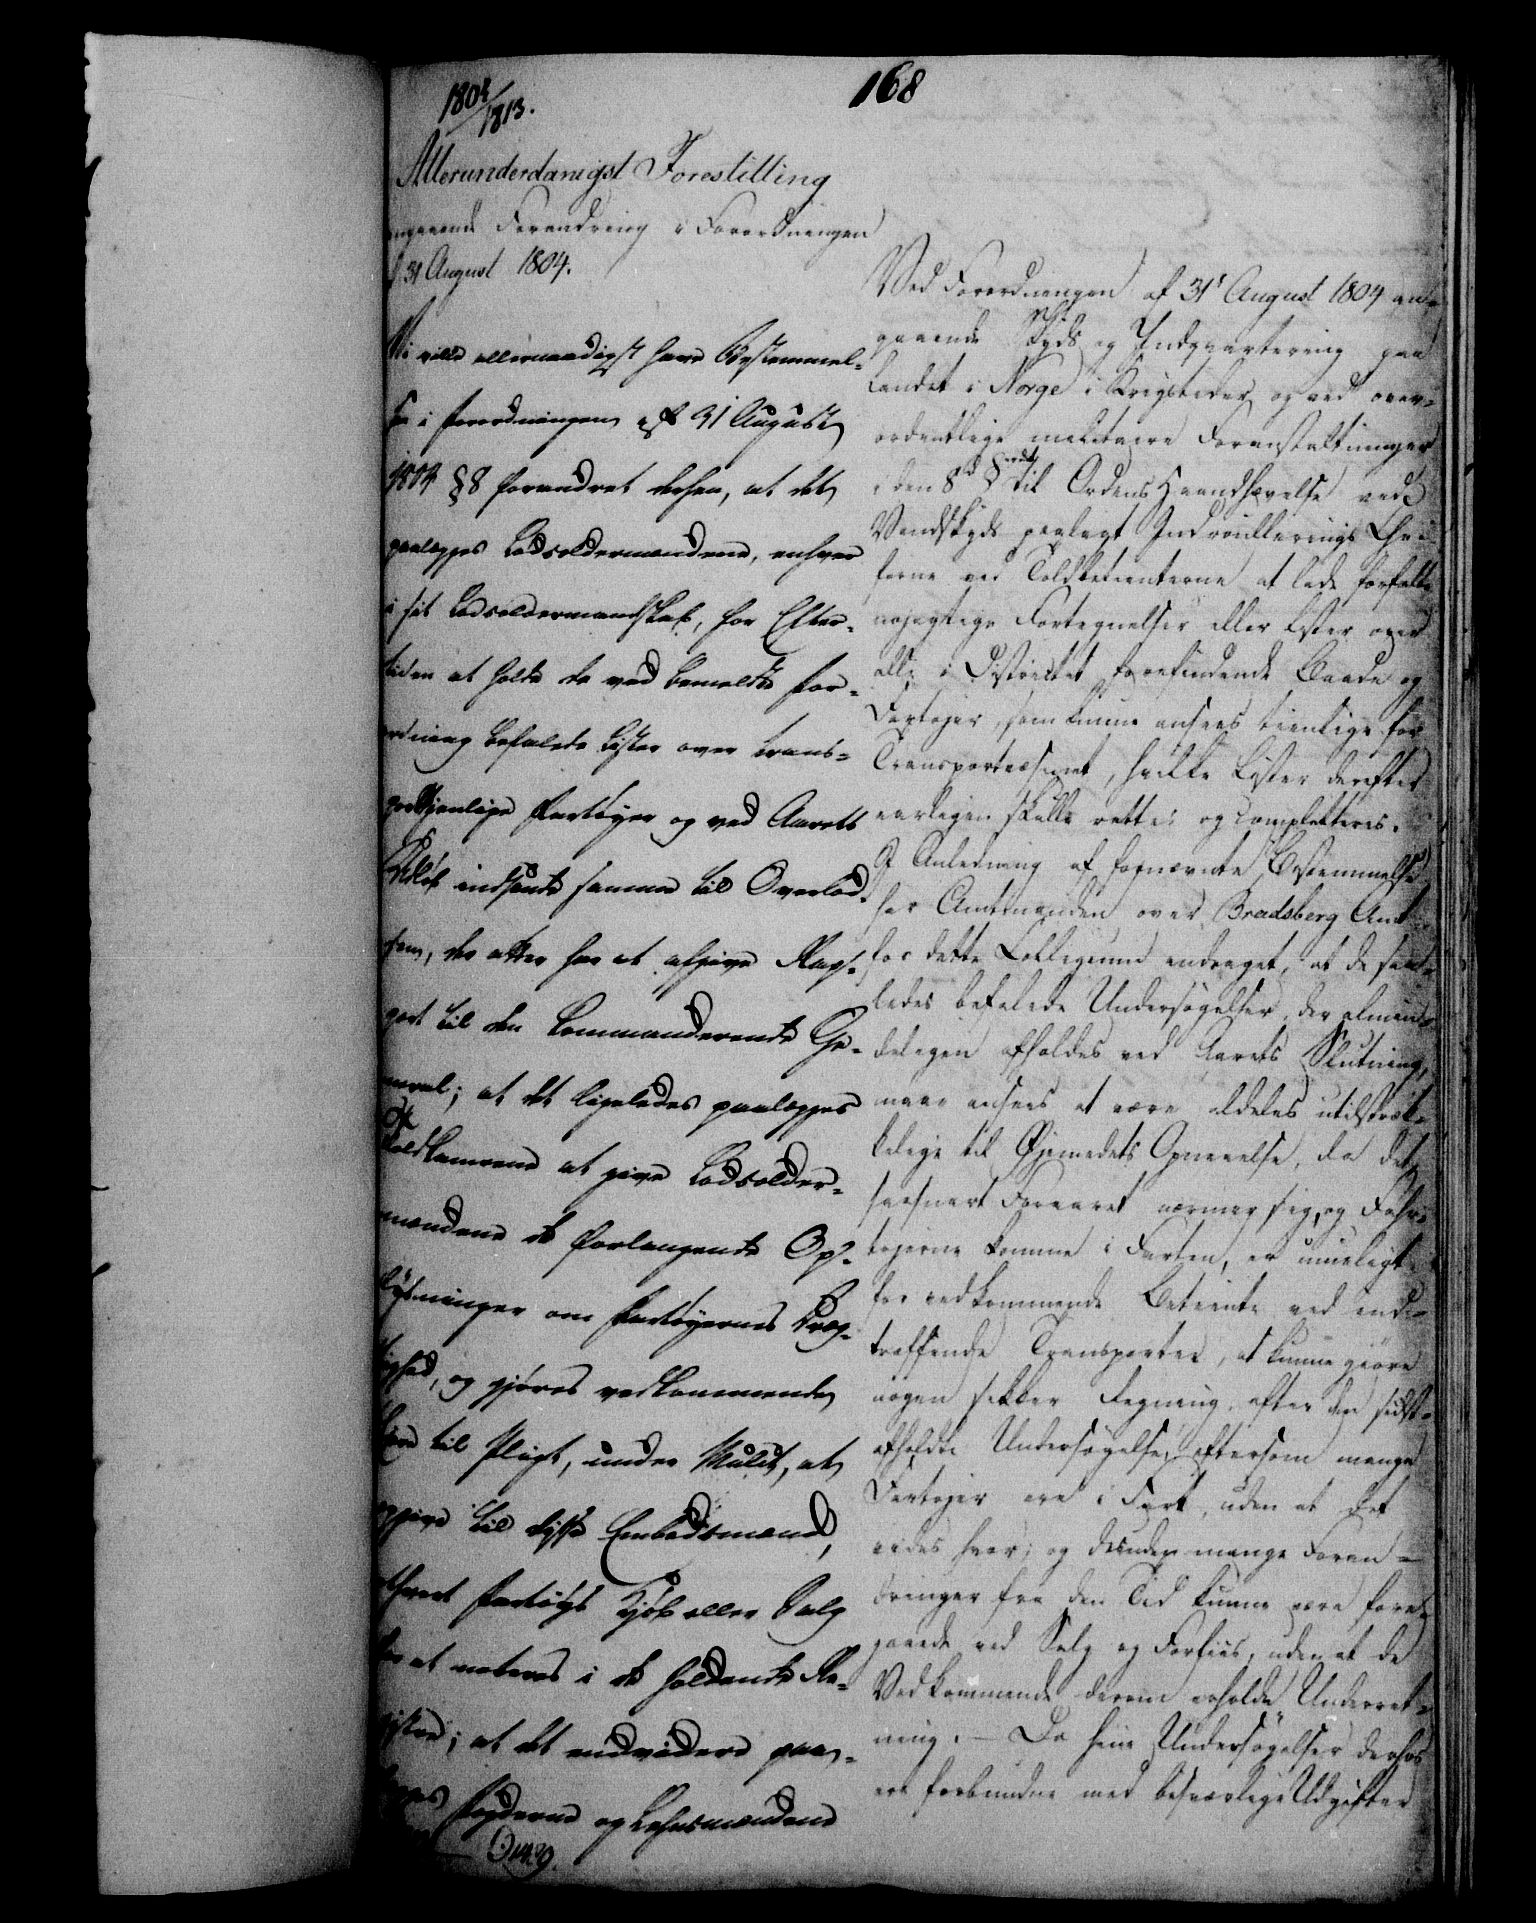 168
1804/1813.
Allerunderdanigst Forestilling
angaaende Forandring i Forordningen
af 31 August 1804.
Vi ville allernaadigst have Bestemmel-
sen i Forordningen af 31 August
1804 § 8 forandret derhen, at det
paalægges Lodsoldermændene, enhver
i sit Lodsoldermandskab, for Efter-
tiden at holde de ved bemeldte For-
ordning befalede Lister over trans-
porttjenlige Fartøyer og ved Aarets
Udløb indsende samme til Overlod-
sen, der atter har at afgive Rap-
port til den Commanderende Ge-
neral; at det ligeledes paalægges
Toldkamrene at give Lodsolder-
mændene de forlangende Op-
lysninger om Fartøyernes Dræg-
tighed, og gjøres vedkommende
til Pligt, under Mulct, at
opgive til disse Embedsmænd,
ethvert Fartøys Kjøb eller Salg
for at noteres i de holdende Re-
gistre; at det endvidere paa-
lægges Fogderne og Lehnsmændene
Ved Forordningen af 31t August 1804 an-
gaaende Skyds og Indqvartering paa
Landet i Norge i Krigstider og ved over-
ordentlige militaire Foranstaltninger
i den 8d § er det til Ordens Haandhævelse ved
Vandskyds paalagt Indroullerings Che-
ferne ved Toldbetienterne at lade forfatte
nøjagtige Fortegnelser eller Lister over
alle i Districtet forefindende Baade og
Fartøjer, som kunne ansees tienlige for
Transportvæsenet, hvilke Lister derefter
aarligen skulle rettes og completteres.
I Anledning af fornævnte Bestemmelse
har Amtmanden over Bradsberg Amt
for dette Collegium andraget, at de saa-
ledes befalede Undersøgelser, der almin-
deligen afholdes ved Aarets Slutning,
maae ansees at være aldeles utilstræk-
kelige til Øjemedets Opnaaelse, da det
saasnart Foraaret nærmer sig, og Far-
tøjerne komme i Farten, er umueligt
for vedkommende Betiente ved ind-
træffende Transporter, at kunne giøre
nogen sikker Regning efter den sidst-
afholdte Undersøgelse, eftersom mange
Fartøjer ere i Fart, uden at det
vides hvor; og desuden mange Foran-
dringer fra den Tid kunne være fore-
gaaede ved Salg og Forliis, uden at de
Vedkommende derom erholde Underret-
ning. — Da hine Undersøgelser derhos
ere forbundne med besværlige Udgifter